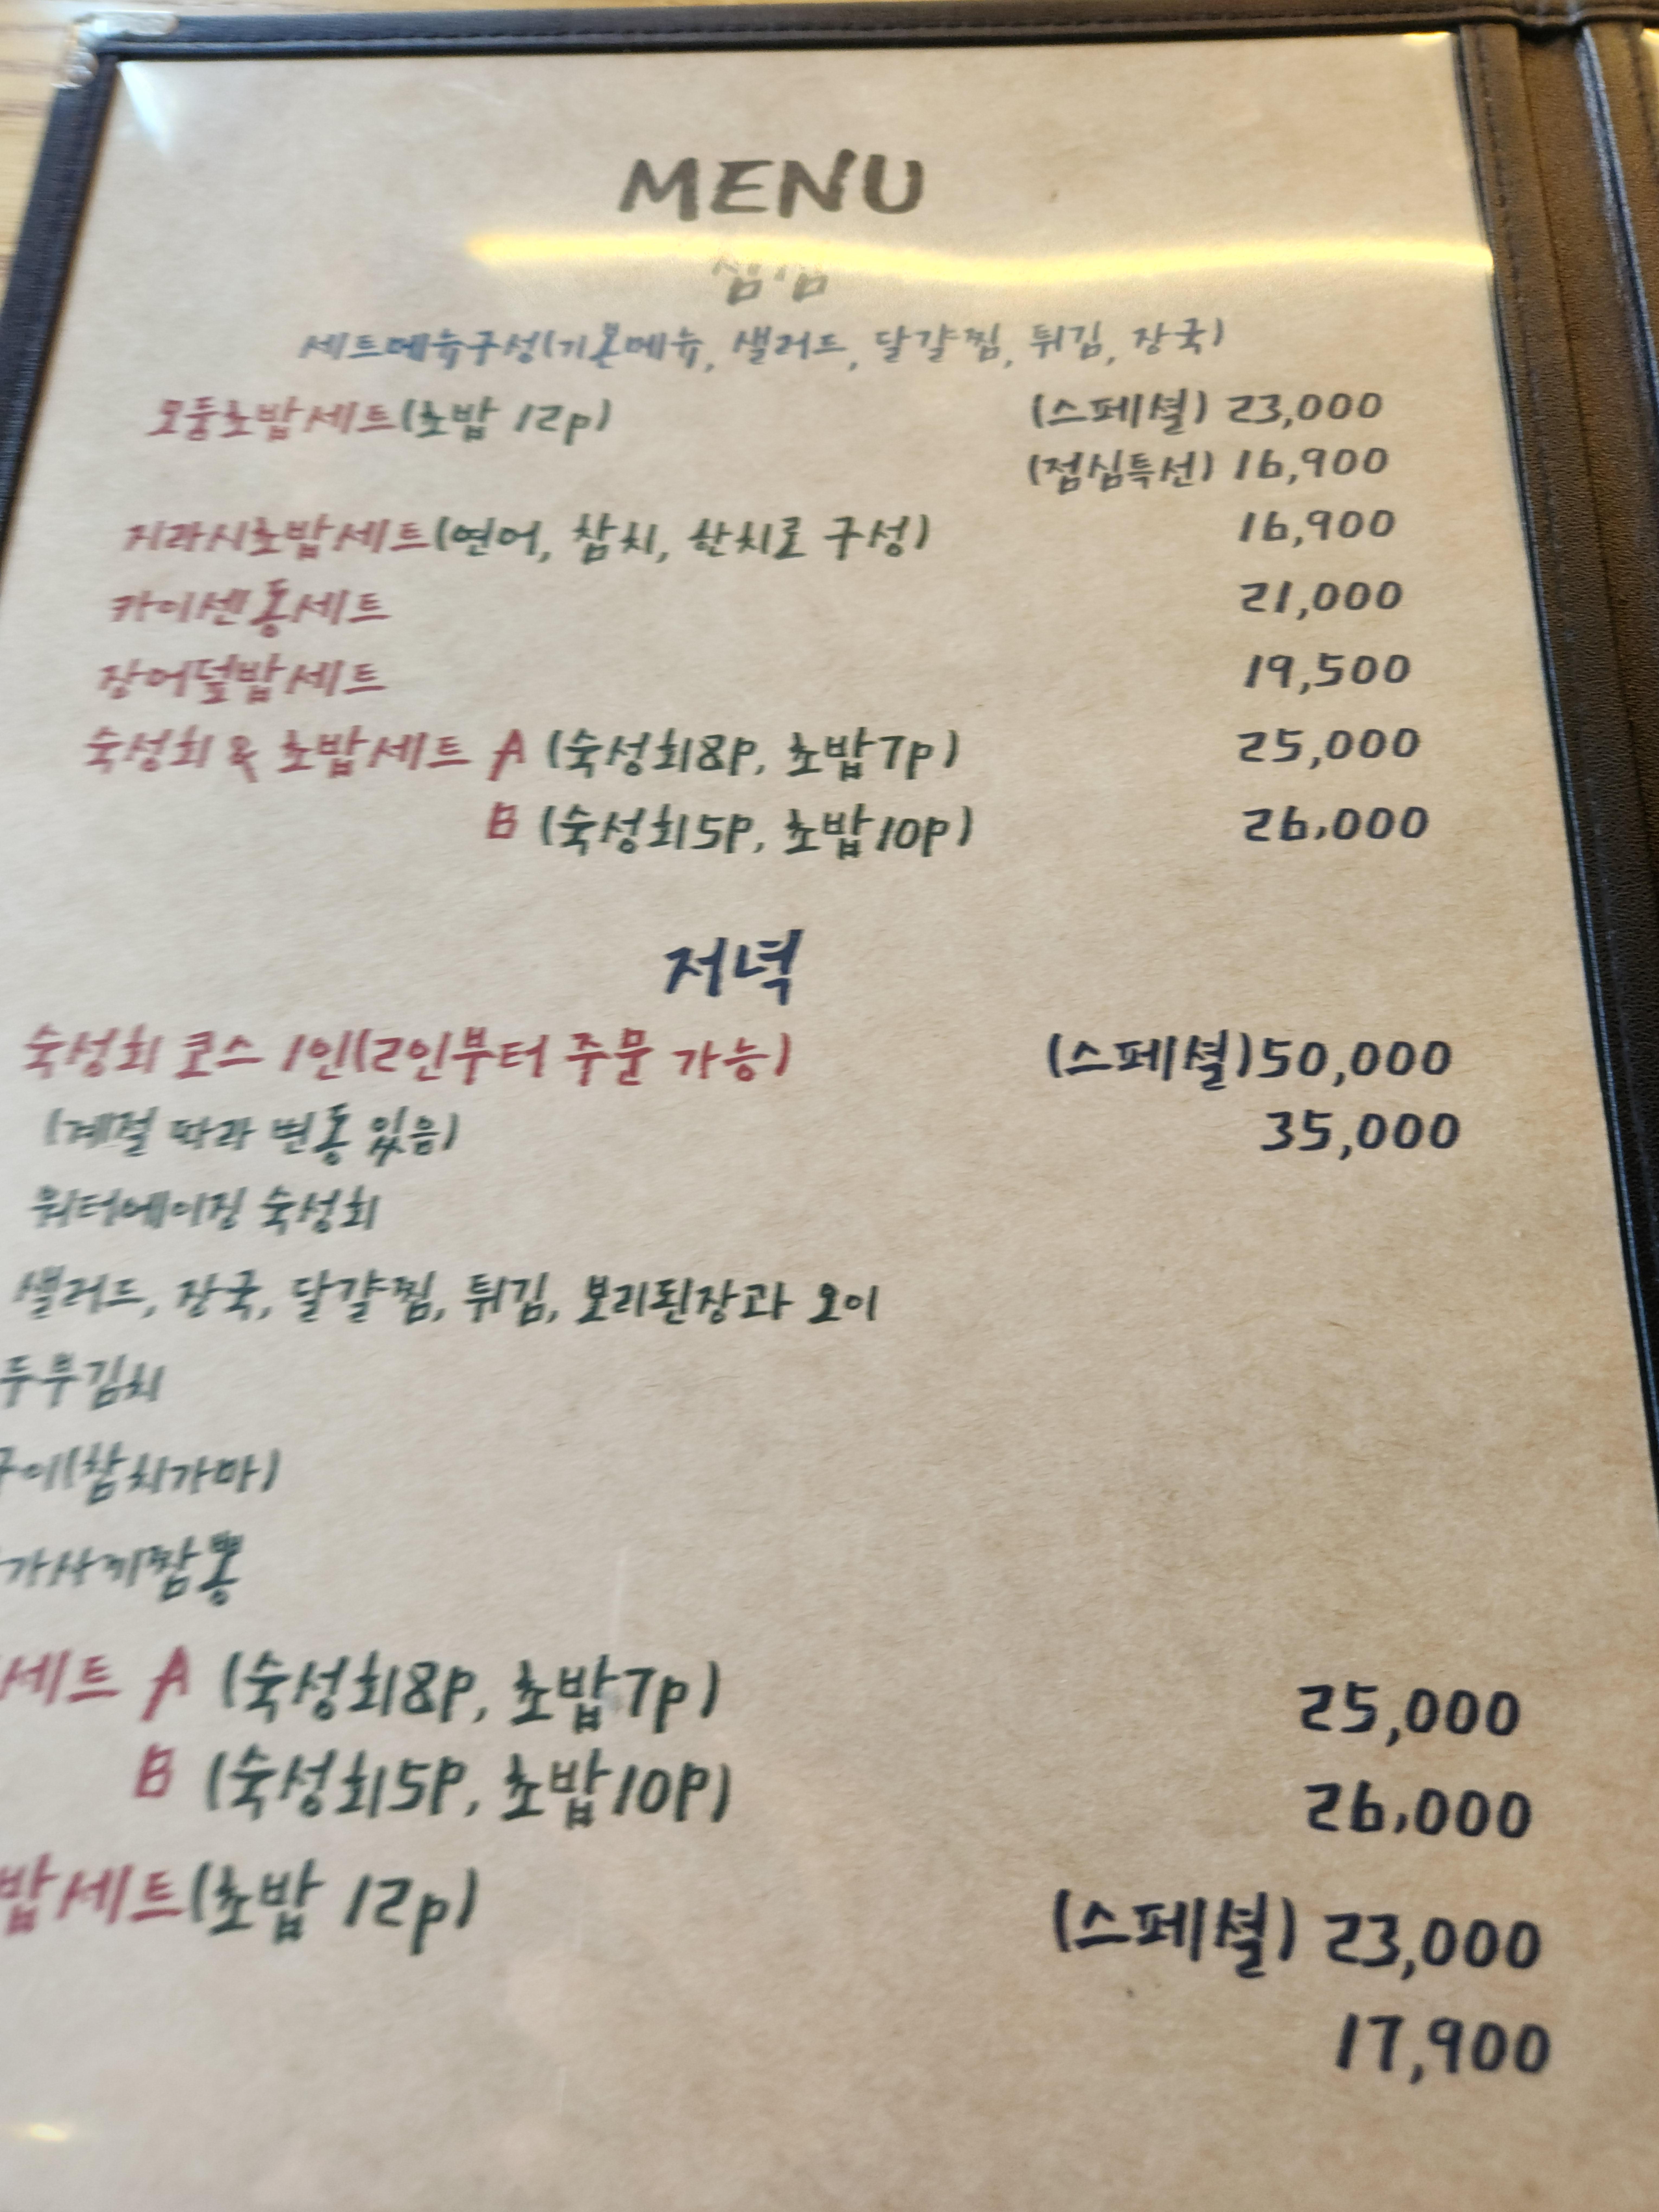 MENU
점심
세트메뉴구성(기본메뉴, 샐러드, 달걀찜, 튀김, 장국)
모둠초밥세트(초밥 12p) (스페셜) 23,000
(점심특선) 16,900
지라시초밥세트(연어, 참치, 한치로 구성) 16,900
카이센동세트 21,000
장어덮밥세트 19,500
숙성회 & 초밥세트 A (숙성회8p, 초밥7p) 25,000
B (숙성회5p, 초밥10p) 26,000
저녁
숙성회 코스 1인(2인부터 주문 가능) (스페셜)50,000
(계절 따라 변동 있음) 35,000
워터에이징 숙성회
샐러드, 장국, 달걀찜, 튀김, 보리된장과 오이
두부김치
구이(참치가마)
가사끼짬뽕
세트 A (숙성회8p, 초밥7p) 25,000
B (숙성회5p, 초밥10p) 26,000
밥세트(초밥 12p) (스페셜) 23,000
17,900